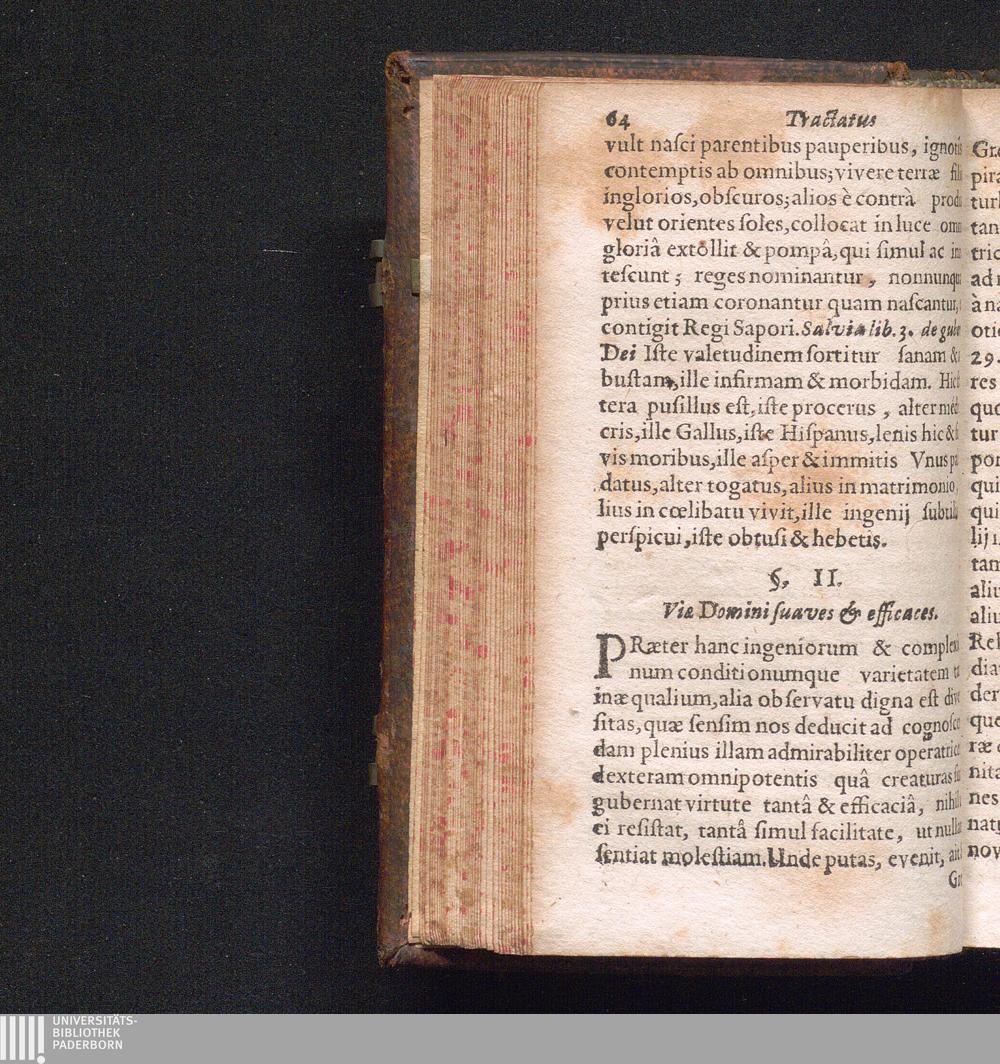 64 Tractatus
vult nasci parentibus pauperibus, ignotis
contemptis ab omnibus; vivere terræ fili
inglorios, obscuros; alios è contrà prod
velut orientes soles, collocat in luce om
gloriâ extollit & pompâ, qui simul ac in
tescunt; reges nominantur, nonnunqu
prius etiam coronantur quam nascantur,
contigit Regi Sapori. Salvia lib. 3. de gube
Dei Iste valetudinem sortitur sanam &
bustam, ille infirmam & morbidam. Hic
tera pusillus est, iste procerus, alter me
cris, ille Gallus, iste Hispanus, lenis hic &
vis moribus, ille asper & immitis Vnus pa
datus, alter togatus, alius in matrimonio,
lius in cœlibatu vivit, ille ingenij subtil
perspicui, iste obtusi & hebetis.
§. II.
Viæ Domini suaves & efficaces.
PRæter hanc ingeniorum & complexi
num conditionumque varietatem
inæqualium, alia observatu digna est dive
sitas, quæ sensim nos deducit ad cognosce
dam plenius illam admirabiliter operatric
dexteram omnipotentis quâ creaturas su
gubernat virtute tantâ & efficaciâ, nihil
ei resistat, tantâ simul facilitate, ut nulla
sentiat molestiam. Unde putas, evenit, ait
Gr
Græ
pira
turb
tan
tric
ad
à na
otio
29.
res
quo
tur
por
qui
qui
lij
tam
aliu
aliu
Rel
dia
der
que
ræ
nita
nes
natu
nov
UNIVERSITÄTS-
BIBLIOTHEK
PADERBORN